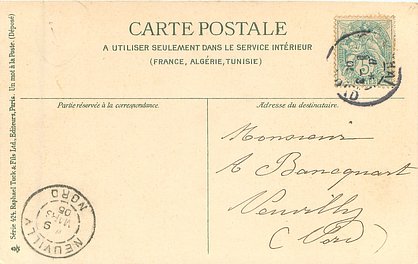 CARTE POSTALE
A UTILISER SEULEMENT DANS LE SERVICE INTÉRIEUR
(FRANCE, ALGÉRIE, TUNISIE)
Partie réservée à la correspondance.
Adresse du destinataire.
Monsieur
A Bancquart
Neuvilly
(Nord)
Série 424. Raphael Tuck & Fils Ltd, Editeurs, Paris. Un mot à la Poste. (Déposé)
NEUVILLY
NORD